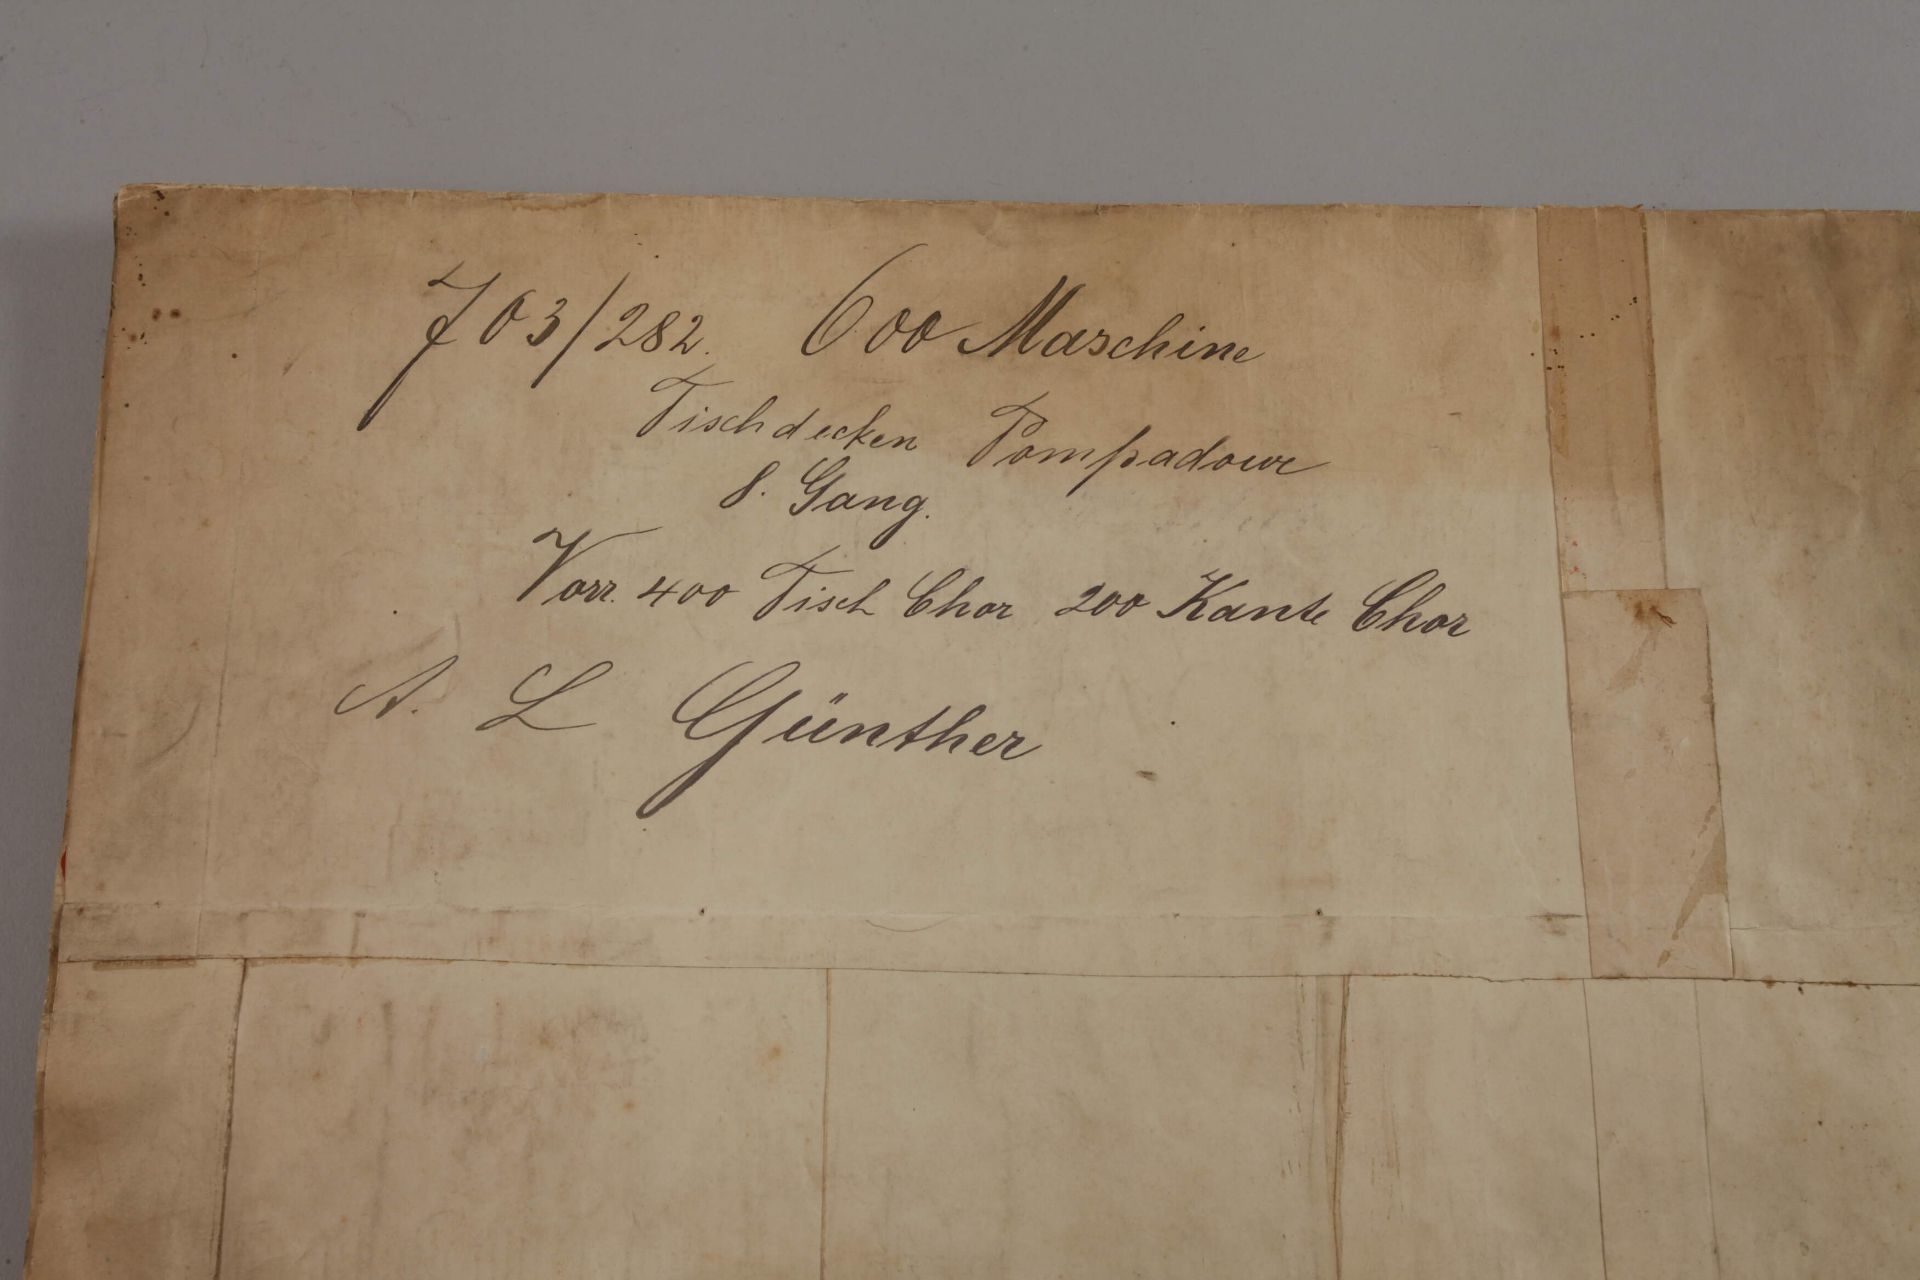 703/282. 600 Maschine
Tischdecken Pompadour
8. Gang.
Vorr. 400 Tisch Chor 200 Kante Chor
A. L Günther